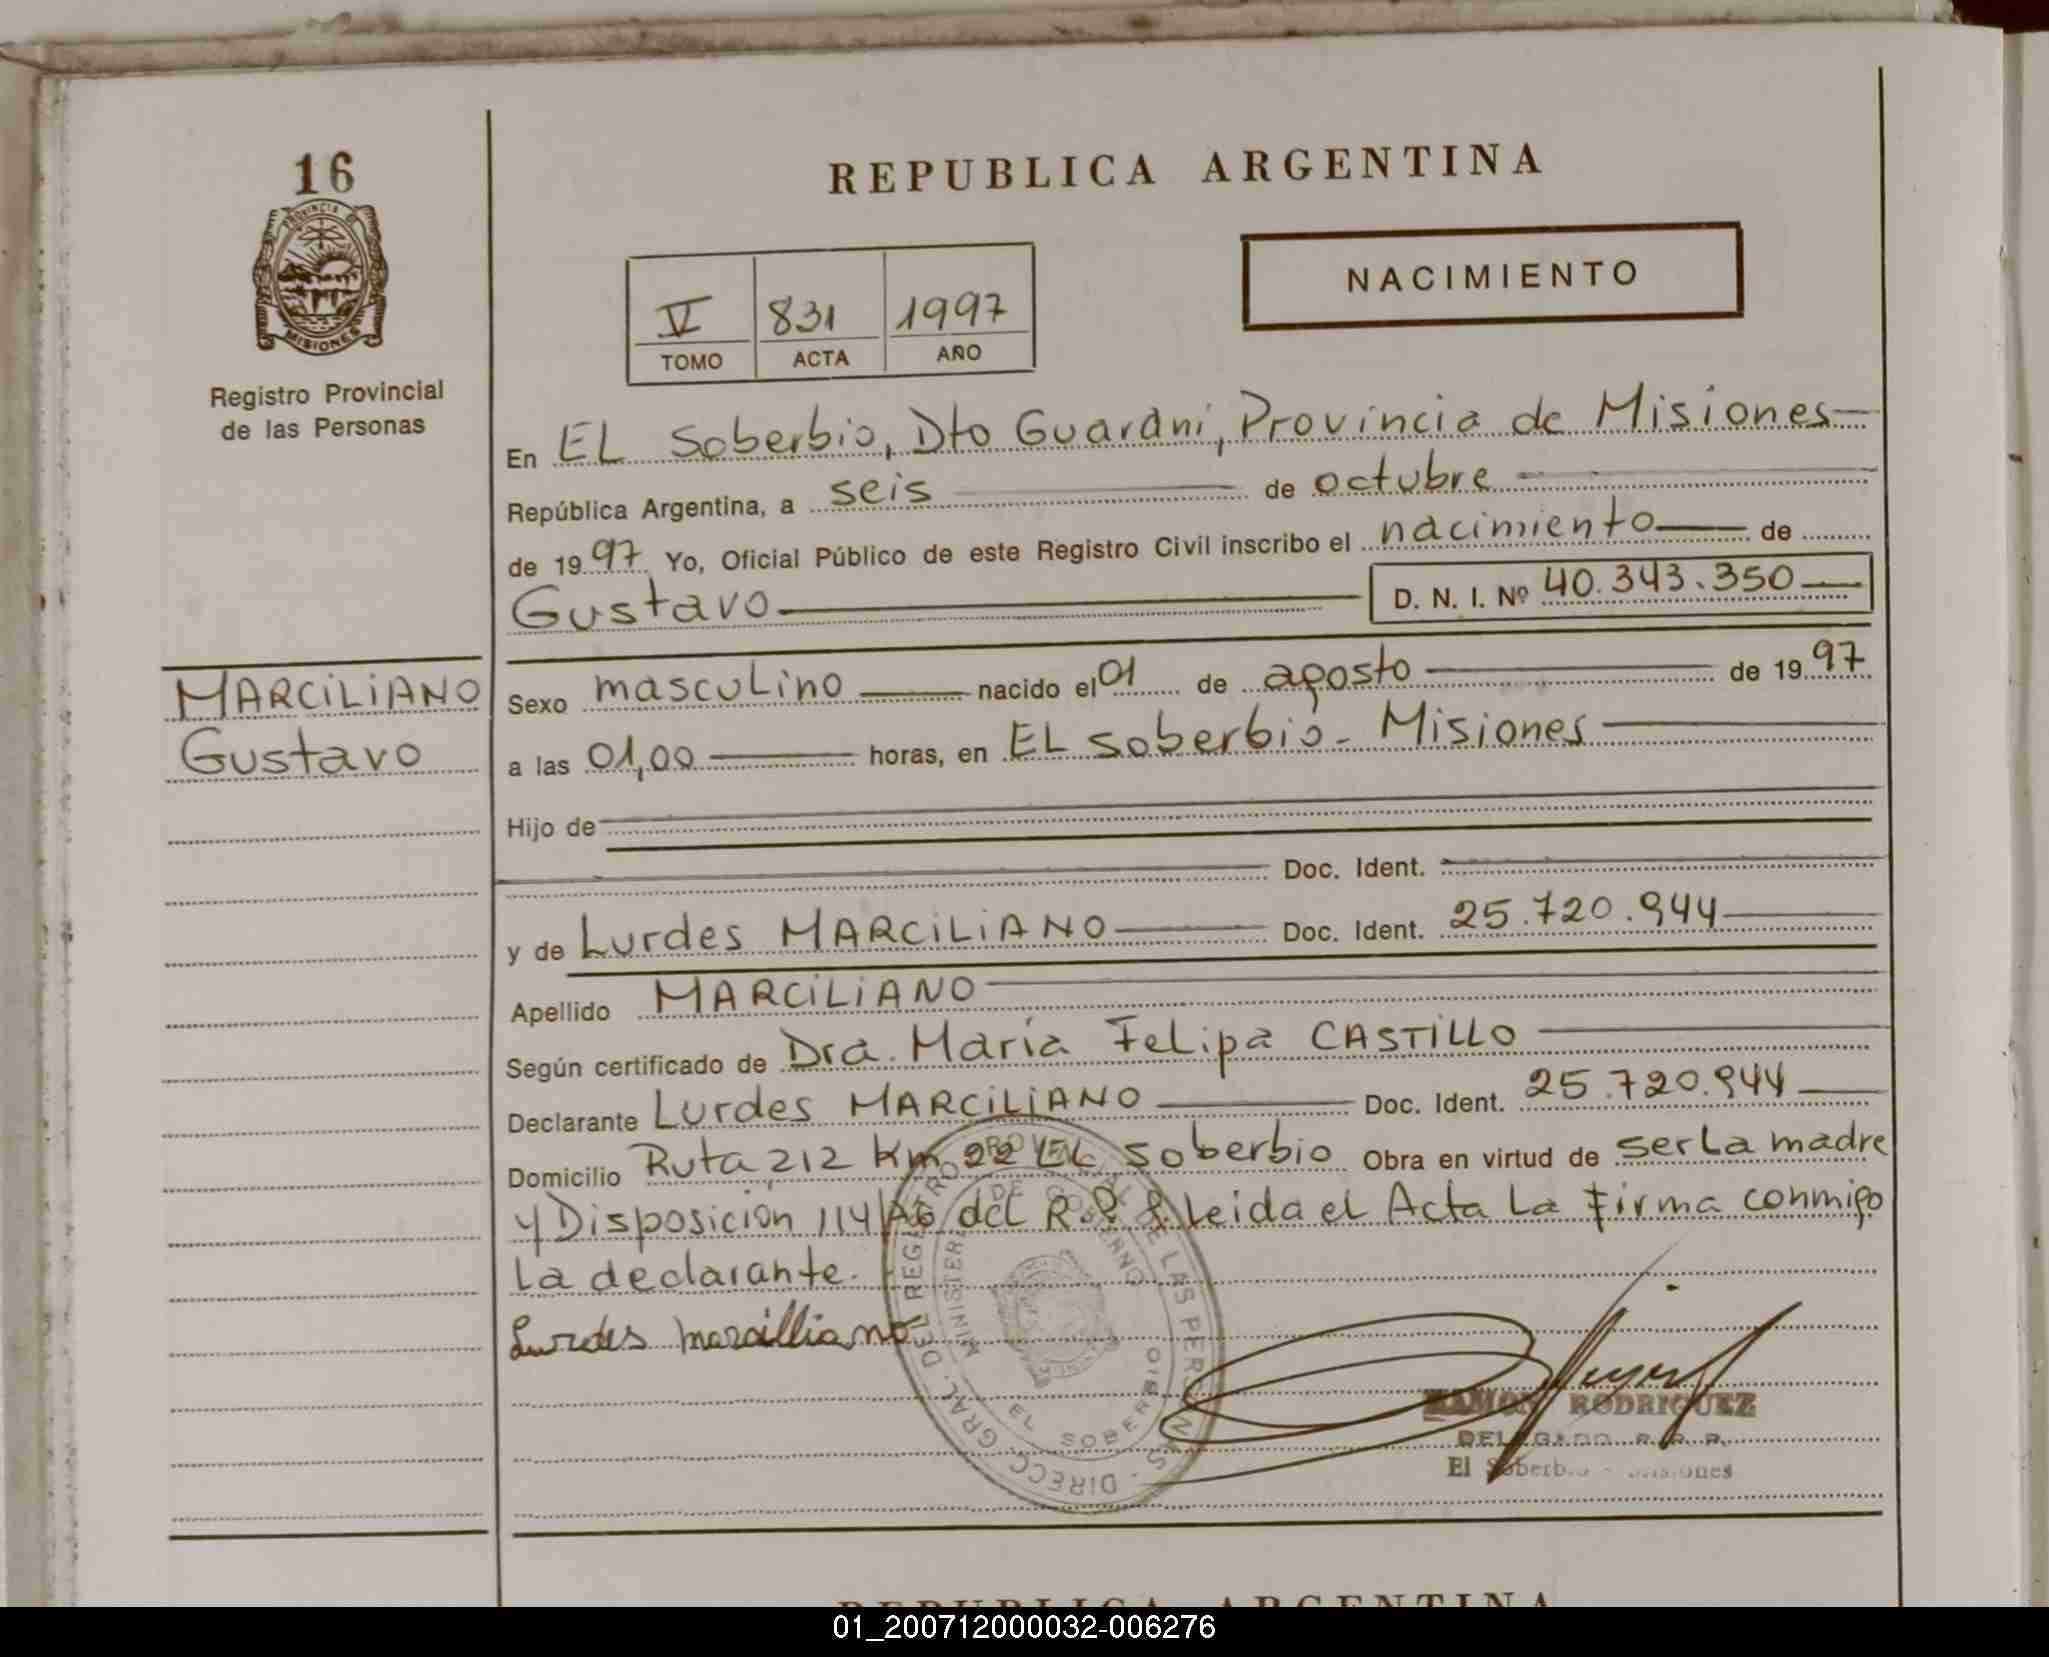 16
PROVINCIA DE
MISIONES
Registro Provincial
de las Personas
REPUBLICA ARGENTINA
NACIMIENTO
V 831 1997
TOMO ACTA AÑO
En EL Soberbio, Dto Guaraní, Provincia de Misiones
República Argentina, a seis de octubre
de 1997 Yo, Oficial Público de este Registro Civil inscribo el nacimiento de
Gustavo D. N. I. Nº 40.343.350
MARCILIANO
Gustavo
Sexo masculino nacido el 01 de agosto de 1997
a las 01,00 horas, en EL Soberbio - Misiones
Hijo de
Doc. Ident.
y de Lurdes MARCILIANO Doc. Ident. 25.720.944
Apellido MARCILIANO
Según certificado de Dra. María Felipa CASTILLO
Declarante Lurdes MARCILIANO Doc. Ident. 25.720.944
Domicilio Ruta 212 Km 22 EL Soberbio Obra en virtud de ser La madre
y Disposición 114/96 del R.P.P. Leida el Acta La firma conmigo
La declarante.
Lurdes marcilliano
DIRECC. GRAL. DEL REGISTRO PROVINCIAL DE LAS PERSONAS
MINISTERIO DE GOBIERNO
EL SOBERBIO
RAMON RODRIGUEZ
DELEGADO R. P. P.
El Soberbio - Misiones
REPUBLICA ARGENTINA
01_200712000032-006276